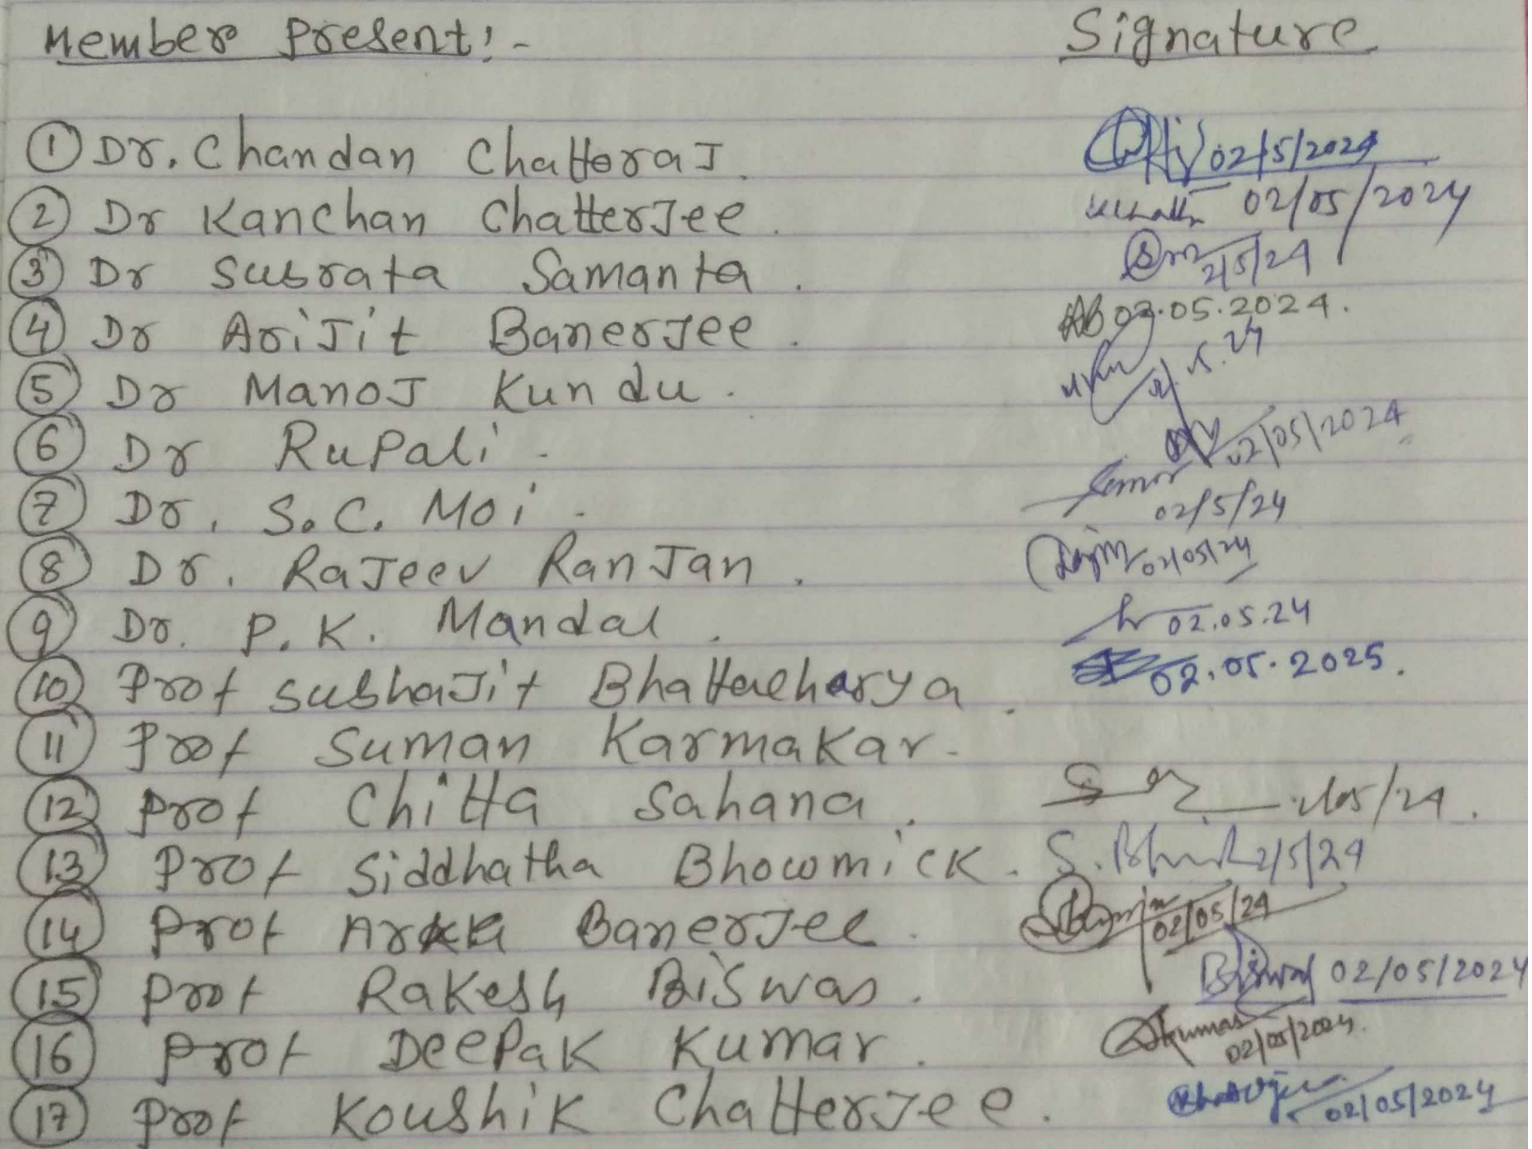 Member Present:- Signature
1 Dr. Chandan Chattoraj. 02/5/2024
2 Dr Kanchan Chatterjee. 02/05/2024
3 Dr Subrata Samanta. 2/5/24
4 Dr Arijit Banerjee. AB 02.05.2024.
5 Dr Manoj Kundu.
6 Dr Rupali. 02/05/2024
7 Dr. S.C. Moi. 02/5/24
8 Dr. Rajeev Ranjan. 02/05/24
9 Dr. P.K. Mandal. 02.05.24
10 Prof Subhajit Bhattacharya. 02.05.2025.
11 Prof Suman Karmakar.
12 Prof Chitta Sahana.
13 Prof Siddhatha Bhowmick. 2/5/24
14 Prof Arka Banerjee. 02/05/24
15 Prof Rakesh Biswas. Biswas 02/05/2024
16 Prof Deepak Kumar. DKumar 02/05/2024.
17 Prof Koushik Chatterjee. 02/05/2024